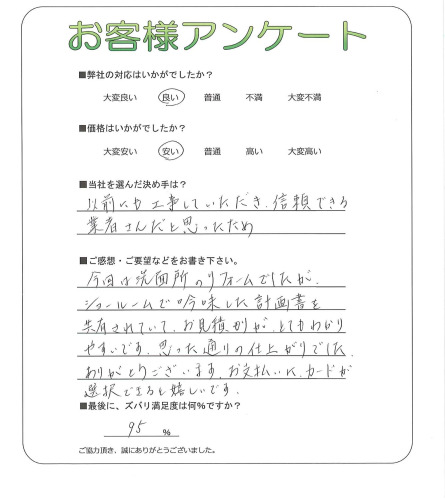 お客様アンケート
■弊社の対応はいかがでしたか?
大変良い 良い 普通 不満 大変不満
■価格はいかがでしたか?
大変安い 安い 普通 高い 大変高い
■当社を選んだ決め手は?
以前にも工事していただき、信頼できる
業者さんだと思ったため
■ご感想・ご要望などをお書き下さい。
今回は洗面所のリフォームでしたが、
ショールームで吟味した計画書を
共有されていて、お見積りが、とてもわかり
やすいです。思った通りの仕上がりでした。
ありがとうございます。お支払いに、カードが
選択できると嬉しいです。
■最後に、ズバリ満足度は何%ですか?
95 %
ご協力頂き、誠にありがとうございました。